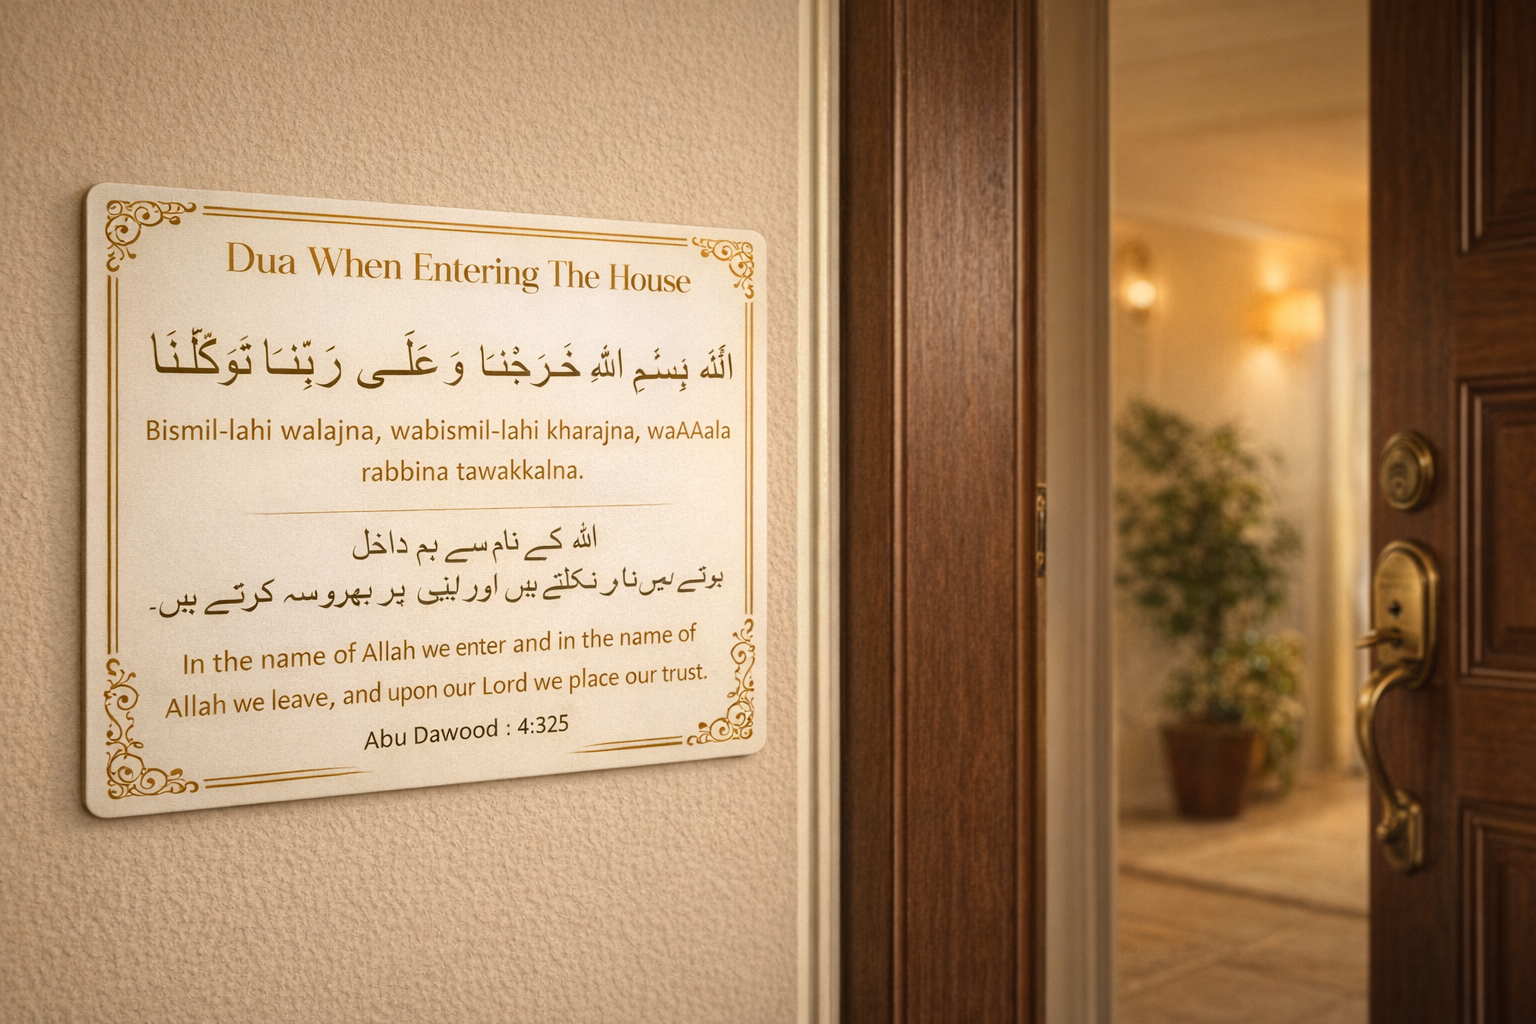 Dua When Entering The House
اللّٰه بِسْمِ اللّٰهِ خَرَجْنَا وَعَلَـى رَبِّنَا تَوَكَّلْنَا
Bismil-lahi walajna, wabismil-lahi kharajna, waAAala
rabbina tawakkalna.
الله کے نام سے ہم داخل
نکلتے ہیں اور پر بھروسہ کرتے ہیں۔
In the name of Allah we enter and in the name of
Allah we leave, and upon our Lord we place our trust.
Abu Dawood : 4:325